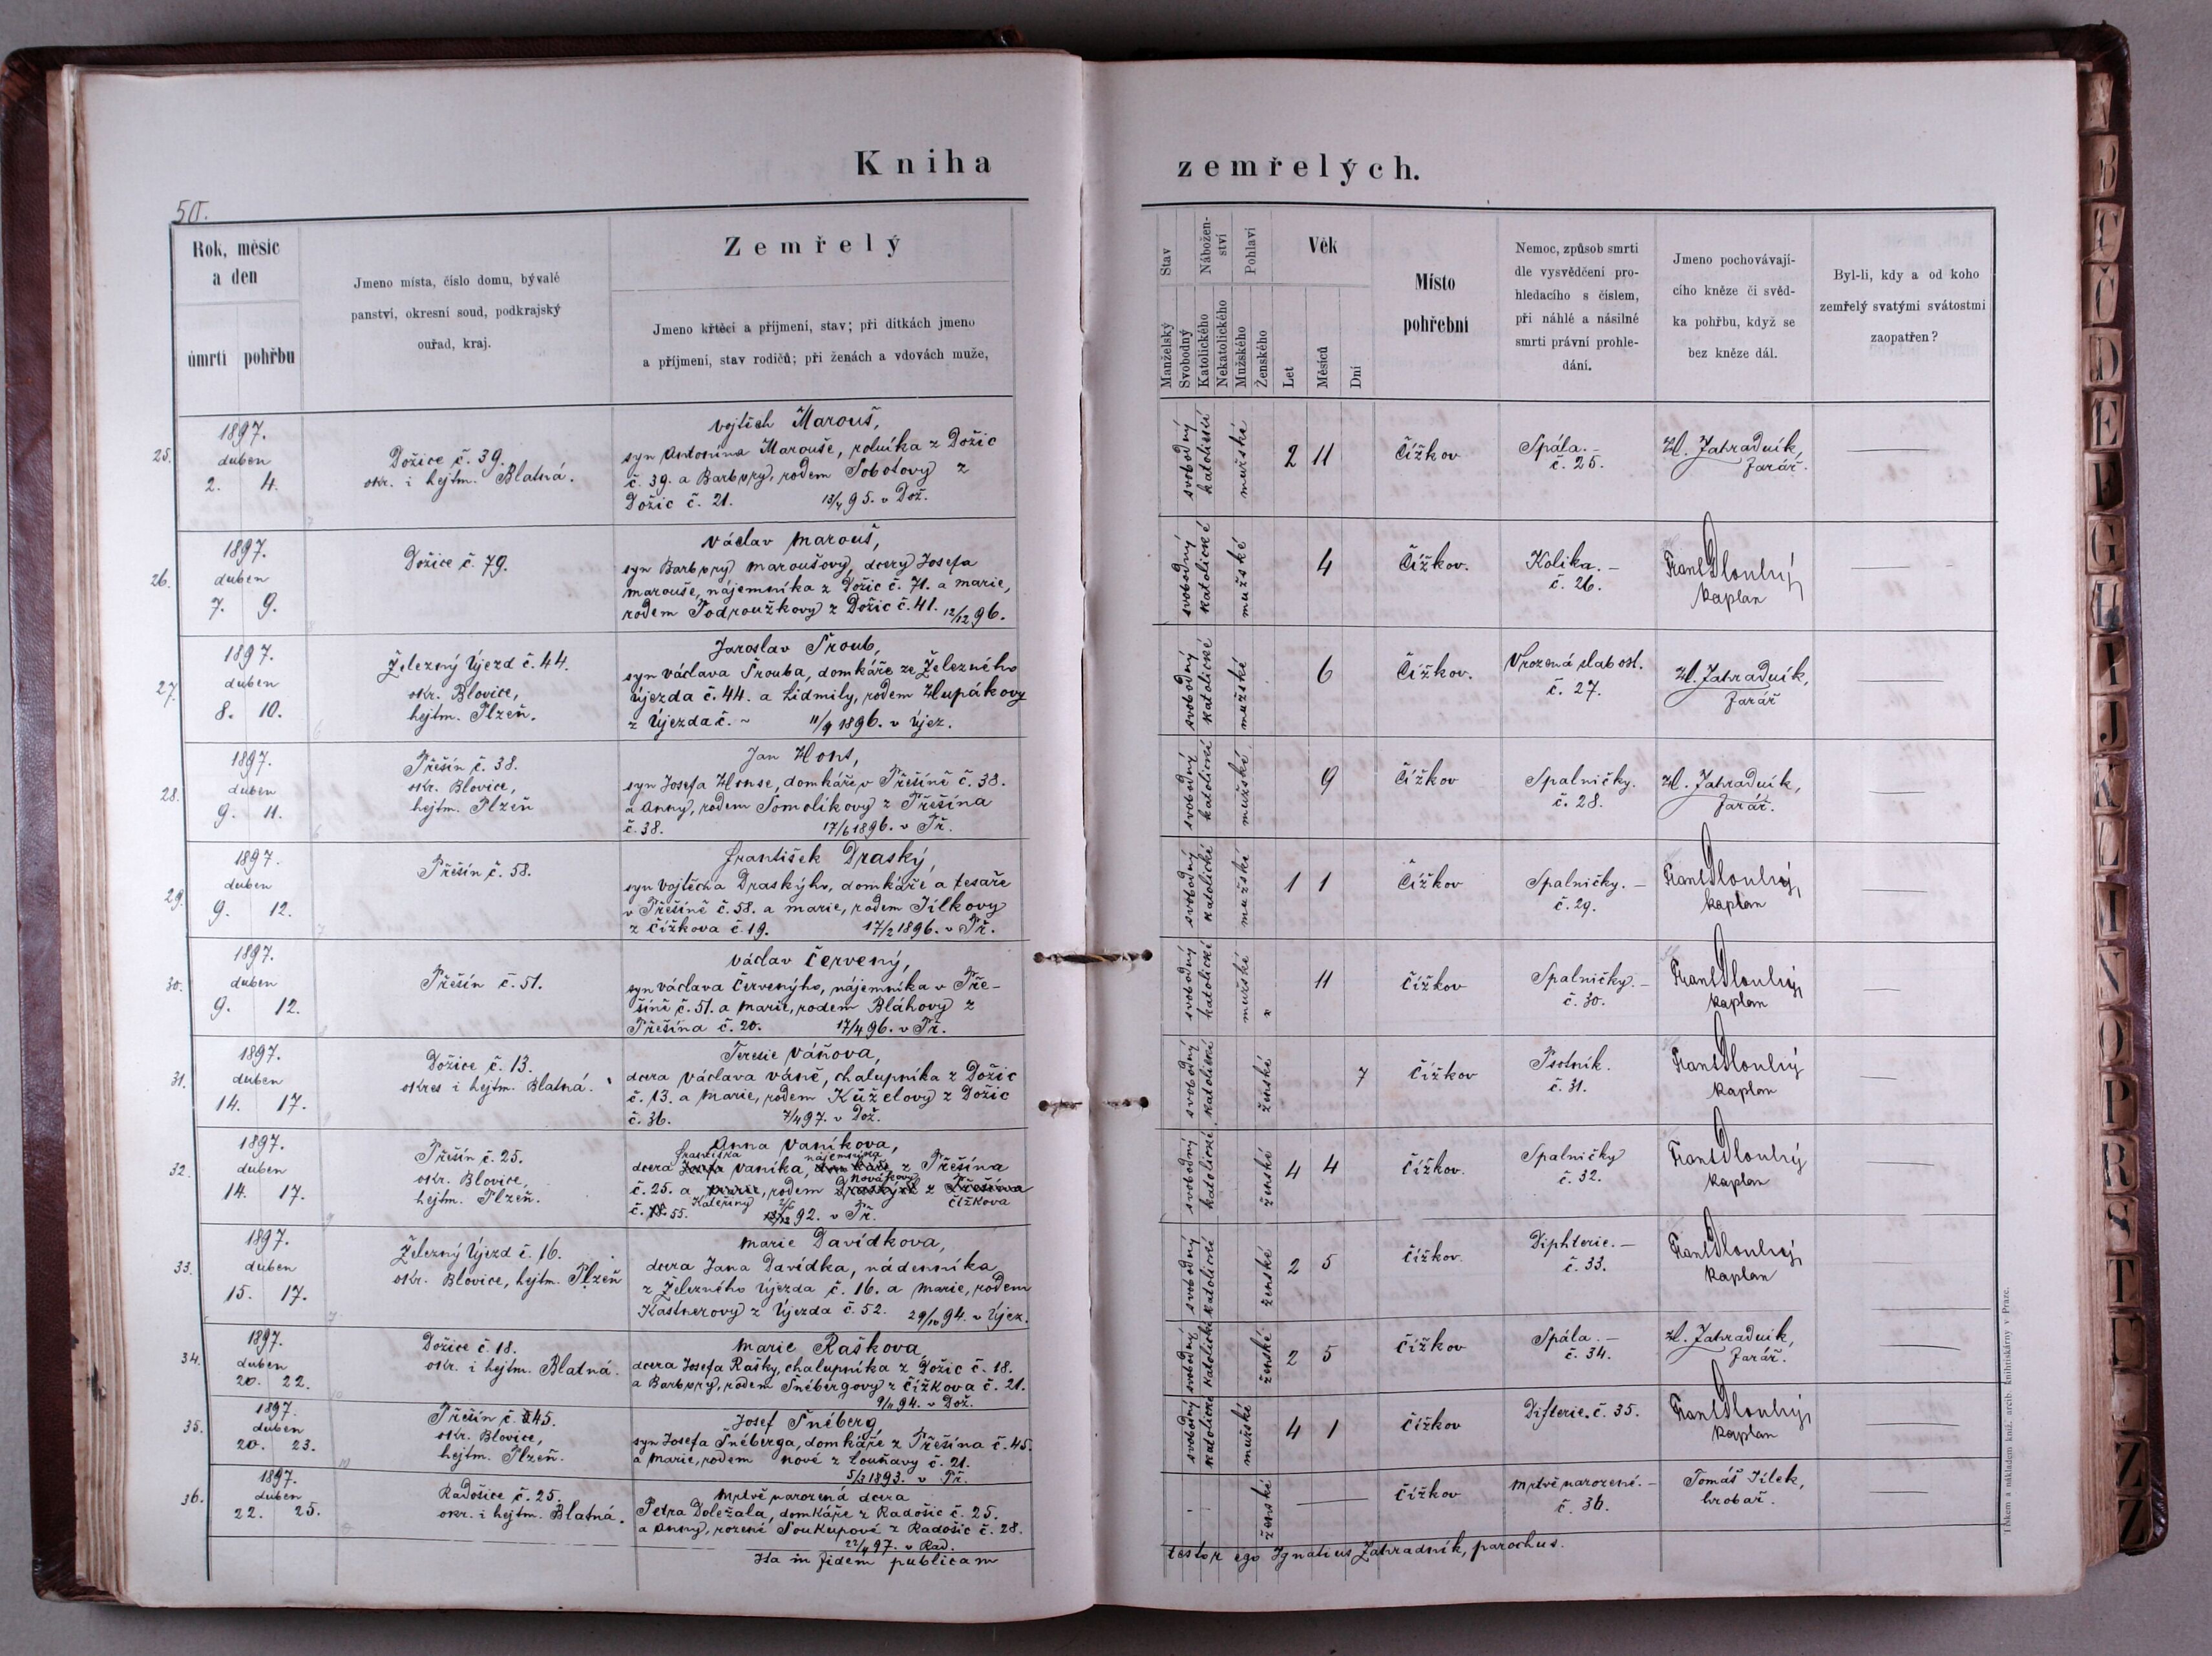 Kniha zemřelých.
50.
Rok, měsíc a den
úmrtí pohřbu
Jmeno místa, číslo domu, bývalé
panství, okresní soud, podkrajský
ouřad, kraj.
Zemřelý
Jmeno křtěcí a příjmení, stav; při dítkách jmeno
a příjmení, stav rodičů; při ženách a vdovách muže,
Stav
Manželský
Svobodný
Nábožen-
ství
Katolického
Nekatolického
Pohlaví
Mužského
Ženského
Věk
Let
Měsíců
Dní
Místo
pohřební
Nemoc, způsob smrti
dle vysvědčení pro-
hledacího s číslem,
při náhlé a násilné
smrti právní prohle-
dání.
Jmeno pochovávají-
cího kněze či svěd-
ka pohřbu, když se
bez kněze dál.
Byl-li, kdy a od koho
zemřelý svatými svátostmi
zaopatřen?
25.
1897.
duben
2. 4.
Dožice č. 39.
okr. i hejtm. Blatná.
Vojtěch Marouš,
syn Antonína Marouše, rolníka z Dožic
č. 39. a Barbory, rodem Sobotovy z
Dožic č. 21. 13/4 95. v Dož.
svobodný
katolické
mužské
2 11
Čížkov
Spála.-
č. 25.
Ig. Zahradník,
farář.
26.
1897.
duben
7. 9.
Dožice č. 79.
Václav Marouš,
syn Barbory Maroušovy, dcery Josefa
Marouše, nájemníka z Dožic č. 71. a Marie,
rodem Podroužkovy z Dožic č. 41. 12/12 96.
svobodný
katolické
mužské
4
Čížkov.
Kolika.-
č. 26.
Frant Dlouhý
kaplan
27.
1897.
duben
8. 10.
Železný Újezd č. 44.
okr. Blovice,
hejtm. Plzeň.
Jaroslav Šroub,
syn Václava Šrouba, domkáře ze Železného
Újezda č. 44. a Lidmily, rodem Hlupákovy
z Újezda č. ~ 11/9 1896. v Újez.
svobodný
katolické
mužské
6
Čížkov.
Vrozená slabost.
č. 27.
Ig. Zahradník,
farář
28.
1897.
duben
9. 11.
Přešín č. 38.
okr. Blovice,
hejtm. Plzeň
Jan Hons,
syn Josefa Honse, domkáře v Přešíně č. 38.
a Anny, rodem Somolíkovy z Přešína
č. 38. 17/6 1896. v Př.
svobodný
katolické
mužské
9
Čížkov
Spalničky.
č. 28.
Ig. Zahradník,
farář.
29.
1897.
duben
9. 12.
Přešín č. 58.
František Draský,
syn Vojtěcha Draskýho, domkáře a tesaře
v Přešíně č. 58. a Marie, rodem Jílkovy
z Čížkova č. 19. 17/2 1896. v Př.
svobodný
katolické
mužské
1 1
Čížkov
Spalničky.-
č. 29.
Frant Dlouhý,
kaplan
30.
1897.
duben
9. 12.
Přešín č. 51.
Václav Červený,
syn Václava Červenýho, nájemníka v Pře-
šíně č. 51. a Marie, rodem Bláhovy z
Přešína č. 20. 17/4 96. v Př.
svobodný
katolické
mužské
11
Čížkov
Spalničky.-
č. 30.
Frant Dlouhý,
kaplan
31.
1897.
duben
14. 17.
Dožice č. 13.
okres i hejtm. Blatná.
Teresie Váňova,
dcera Václava Váně, chalupníka z Dožic
č. 13. a Marie, rodem Kůželovy z Dožic
č. 36. 7/4 97. v Dož.
svobodný
katolické
ženské
7
Čížkov
Psotník.
č. 31.
Frant Dlouhý
kaplan
32.
1897.
duben
14. 17.
Přešín č. 25.
okr. Blovice,
hejtm. Plzeň.
Anna Vaníkova,
Františka nájemníka
dcera Josefa Vaníka, domkáře z Přešína
Novákovy
č. 25. a Marie, rodem Draskýho z Přešína
Kateřiny Čížkova
č. 18. 55. 92. v Př.
svobodný
katolické
ženské
4 4
Čížkov.
Spalničky
č. 32.
Frant Dlouhý
kaplan
33.
1897.
duben
15. 17.
Železný Újezd č. 16.
okr. Blovice, hejtm. Plzeň
Marie Davídkova,
dcera Jana Davídka, nádenníka
z Železného Újezda č. 16. a Marie, rodem
Kastnerovy z Újezda č. 52. 29/10 94. v Újez.
svobodný
katolické
ženské
2 5
Čížkov.
Diphterie.-
č. 33.
Frant Dlouhý,
kaplan
34.
1897.
duben
20. 22.
Dožice č. 18.
okr. i hejtm. Blatná.
Marie Raškova,
dcera Josefa Rašky, chalupníka z Dožic č. 18.
a Barbory, rodem Šnébergovy z Čížkova č. 21.
9/11 94. v Dož.
svobodný
katolické
ženské
2 5
Čížkov
Spála.-
č. 34.
Ig. Zahradník,
farář.
35.
1897.
duben
20. 23.
Přešín č. 45.
okr. Blovice,
hejtm. Plzeň.
Josef Šnéberg,
syn Josefa Šnéberga, domkáře z Přešína č. 45.
a Marie, rodem Nové z Louňavy č. 21.
5/3 1893. v Př.
svobodný
katolické
mužské
4 1
Čížkov
Difterie. č. 35.
Frant Dlouhý,
kaplan
36.
1897.
duben
22. 25.
Radošice č. 25.
okr. i hejtm. Blatná.
Mrtvě narozená dcera
Petra Doležala, domkáře z Radošic č. 25.
a Anny, rozené Soukupové z Radošic č. 28.
22/4 97. v Rad.
ženské
Čížkov
Mrtvě narozené.-
č. 36.
Tomáš Jílek,
hrobař.
Ita in fidem publicam testor ego Ignatius Zahradník, parochus.
Tiskem a nákladem kníž. arcib. knihtiskárny v Praze.
B C Č D E F G H I J K L M N O P R S T U Z Ž